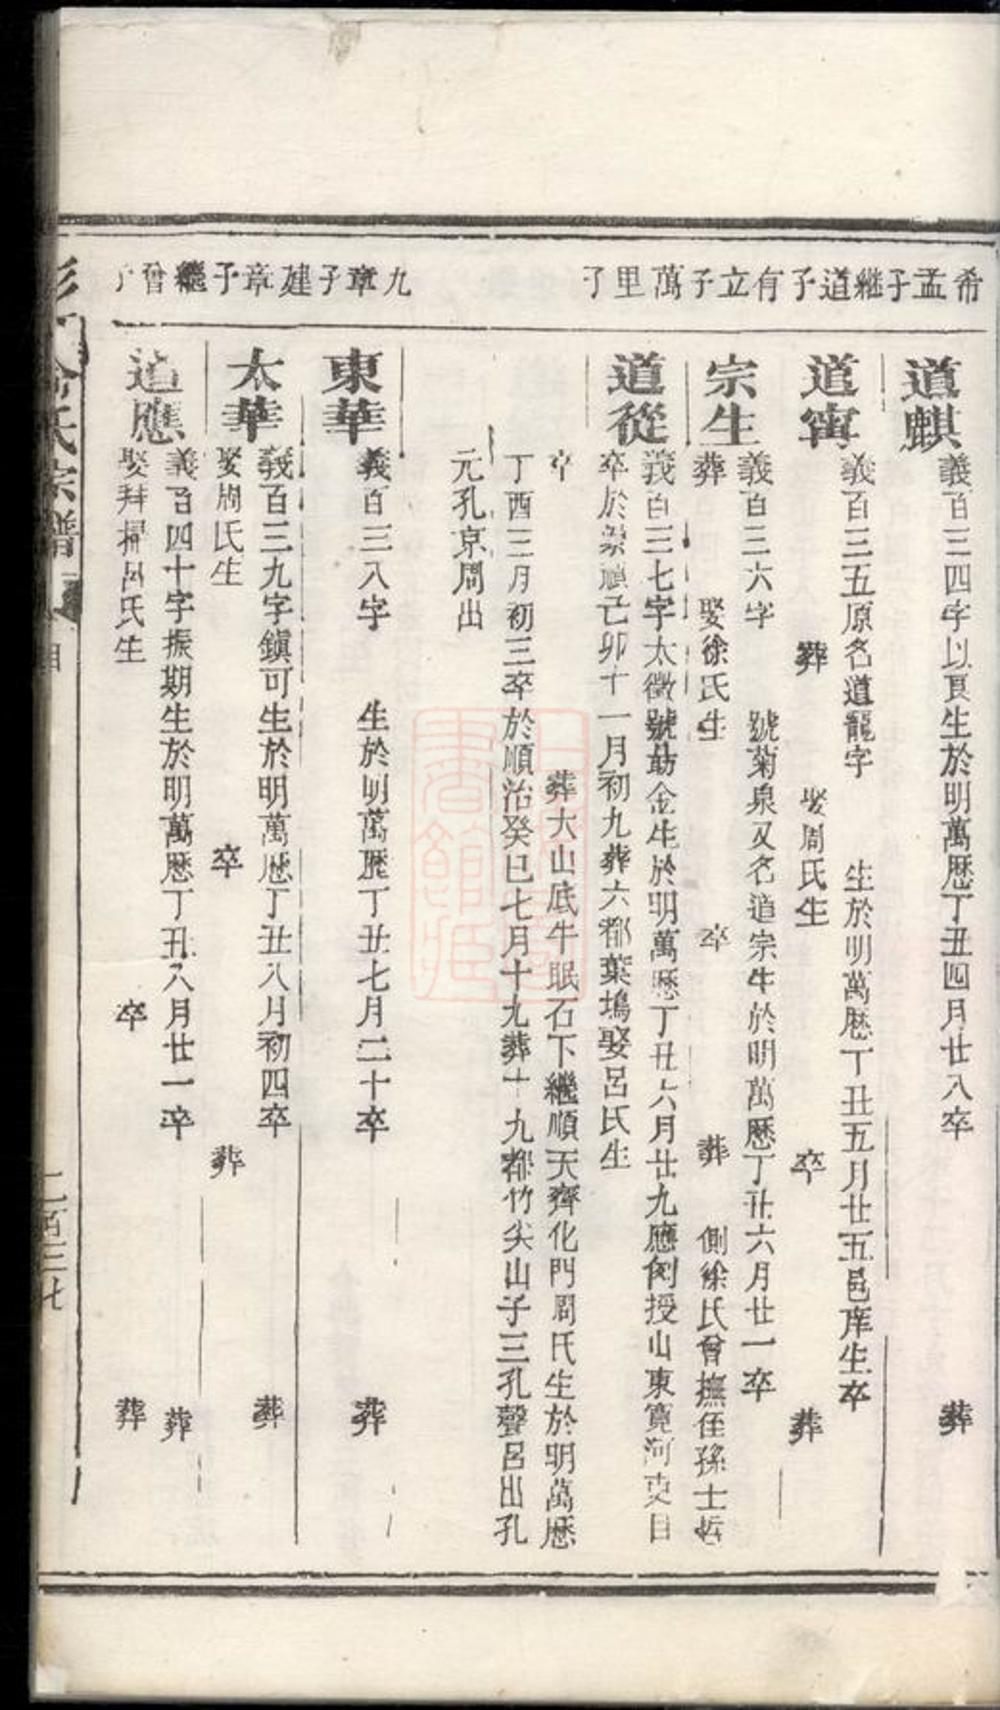 希孟子　繼道子　有立子　萬里子　九章子　建章子　繼曾子
道麒
義百三四字以真生於明萬歷丁丑四月廿八卒　葬
道甯
義百三五原名道龍字　生於明萬歷丁丑五月廿五邑庠生卒
葬　娶周氏生　卒　葬
宗生
義百三六字　號菊泉又名道宗生於明萬歷丁丑六月廿一卒
葬　娶徐氏生　卒　葬　側徐氏曾撫侄孫士哲
道從
義百三七字太徵號金生於明萬歷丁丑六月廿九應例授山東寬河吏目
卒於崇禎己卯十一月初九葬六都葉塢娶呂氏生
卒　葬大山底牛眠石下繼順天齊化門周氏生於明萬歷
丁酉三月初三卒於順治癸巳七月十九葬十九都竹尖山子三孔聲呂出孔
元孔京周出
東華
義百三八字　生於明萬歷丁丑七月二十卒　葬
太華
義百三九字鎮可生於明萬歷丁丑八月初四卒　葬
娶周氏生　卒　葬
道應
義百四十字振期生於明萬歷丁丑八月廿一卒　葬
娶拜掃呂氏生　卒　葬
氏宗譜
二百三七